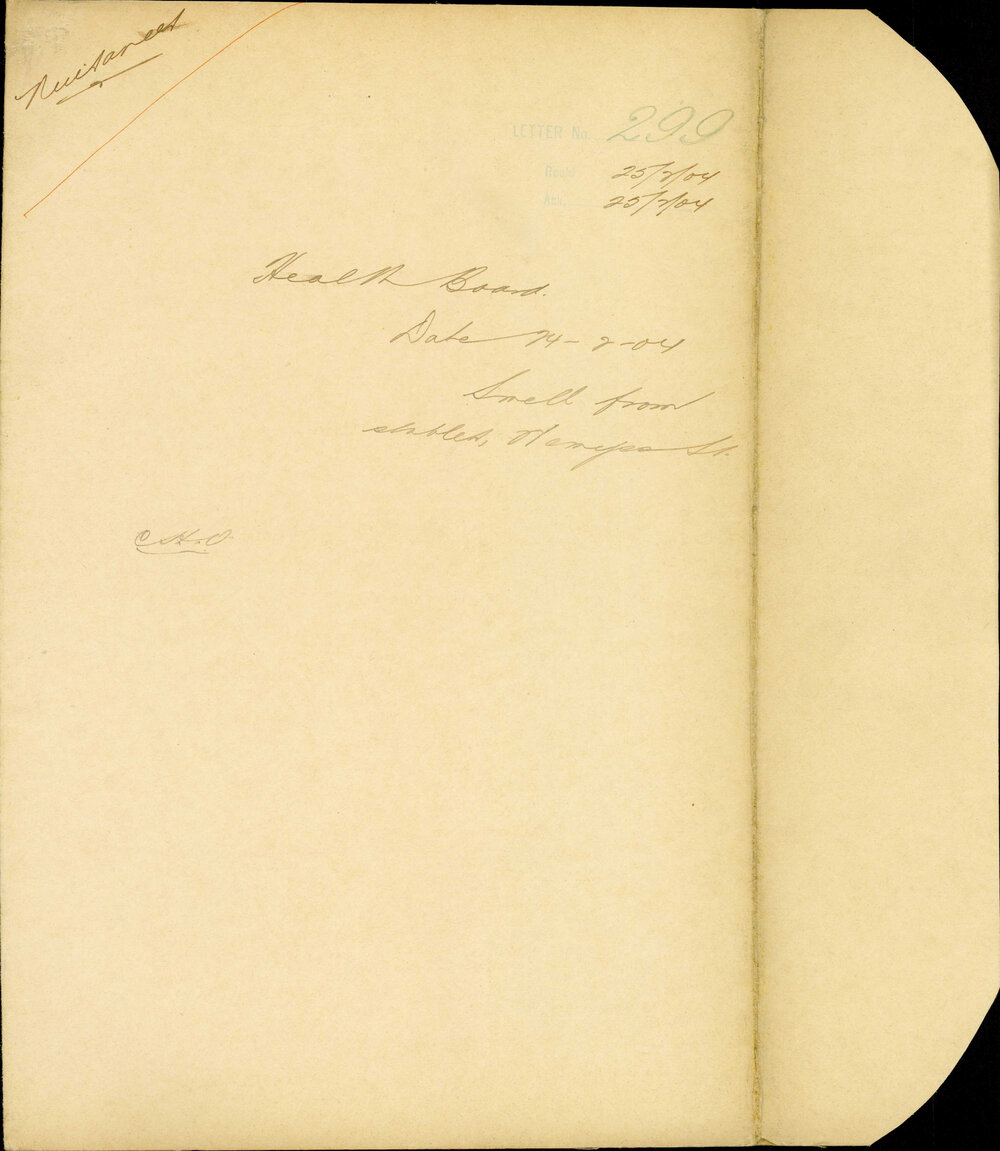 Nuisances
LETTER No. 299
Recd. 25/2/04
Ack. 25/2/04
Health Board.
Date 24-2-04
Smell from
stables, Wemyss St.
C.H.O.